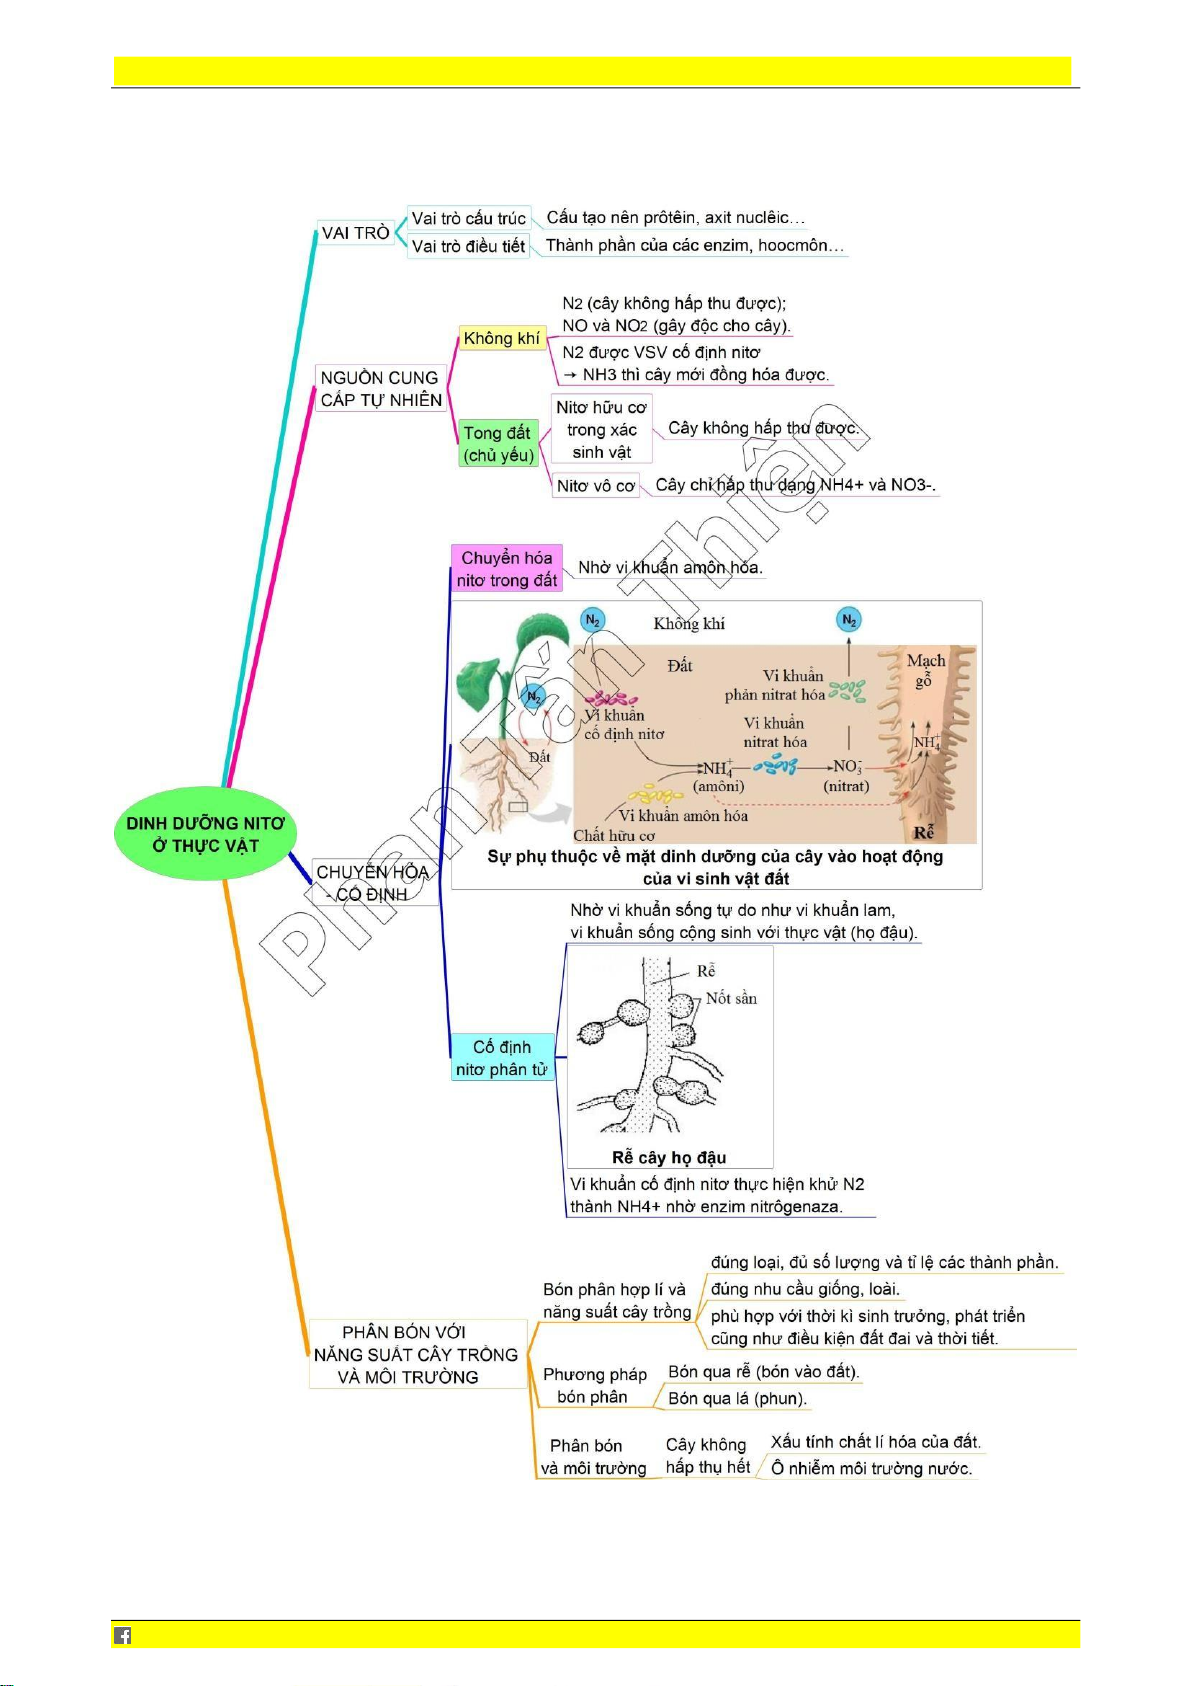 VAI TRÒ
Vai trò cấu trúc
Cấu tạo nên prôtêin, axit nuclêic…
Vai trò điều tiết
Thành phần của các enzim, hoocmôn…
NGUỒN CUNG
CẤP TỰ NHIÊN
Không khí
N2 (cây không hấp thu được);
NO và NO2 (gây độc cho cây).
N2 được VSV cố định nitơ
→ NH3 thì cây mới đồng hóa được.
Tong đất
(chủ yếu)
Nitơ hữu cơ
trong xác
sinh vật
Cây không hấp thu được.
Nitơ vô cơ
Cây chỉ hấp thu dạng NH4+ và NO3-.
DINH DƯỠNG NITƠ
Ở THỰC VẬT
CHUYỂN HÓA
- CỐ ĐỊNH
Chuyển hóa
nitơ trong đất
Nhờ vi khuẩn amôn hóa.
N2
Không khí
N2
Đất
Mạch
gỗ
Vi khuẩn
phản nitrat hóa
N2
Vi khuẩn
cố định nitơ
Vi khuẩn
nitrat hóa
Đất
NH4+
NH4+
(amôni)
NO3-
(nitrat)
Vi khuẩn amôn hóa
Chất hữu cơ
Rễ
Sự phụ thuộc về mặt dinh dưỡng của cây vào hoạt động
của vi sinh vật đất
Cố định
nitơ phân tử
Nhờ vi khuẩn sống tự do như vi khuẩn lam,
vi khuẩn sống cộng sinh với thực vật (họ đậu).
Rễ
Nốt sần
Rễ cây họ đậu
Vi khuẩn cố định nitơ thực hiện khử N2
thành NH4+ nhờ enzim nitrôgenaza.
PHÂN BÓN VỚI
NĂNG SUẤT CÂY TRỒNG
VÀ MÔI TRƯỜNG
Bón phân hợp lí và
năng suất cây trồng
đúng loại, đủ số lượng và tỉ lệ các thành phần.
đúng nhu cầu giống, loài.
phù hợp với thời kì sinh trưởng, phát triển
cũng như điều kiện đất đai và thời tiết.
Phương pháp
bón phân
Bón qua rễ (bón vào đất).
Bón qua lá (phun).
Phân bón
và môi trường
Cây không
hấp thụ hết
Xấu tính chất lí hóa của đất.
Ô nhiễm môi trường nước.